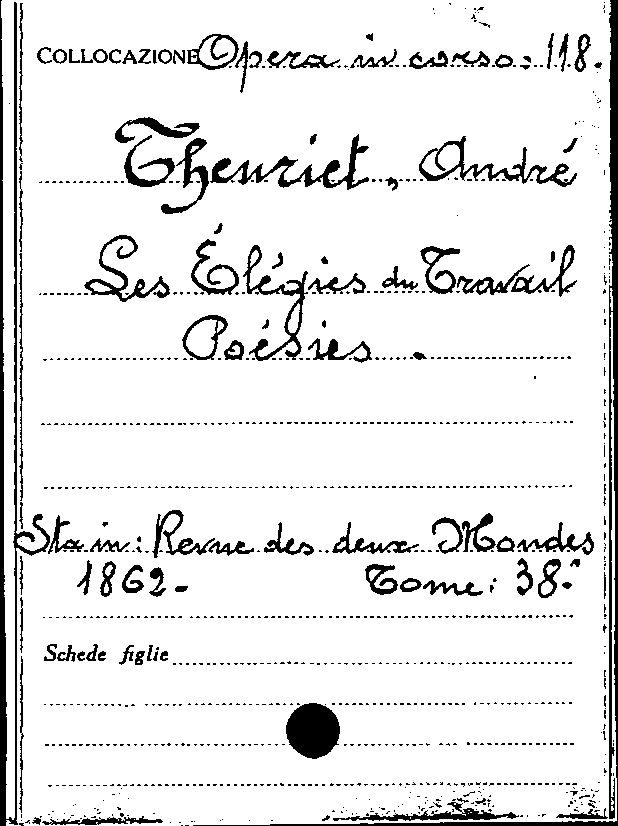 COLLOCAZIONE Opera in corso. 118.
Theuriet, André
Les Élégies du Travail
Poésies.
Sta in: Revue des deux Mondes
1862- Tome: 38.°
Schede figlie